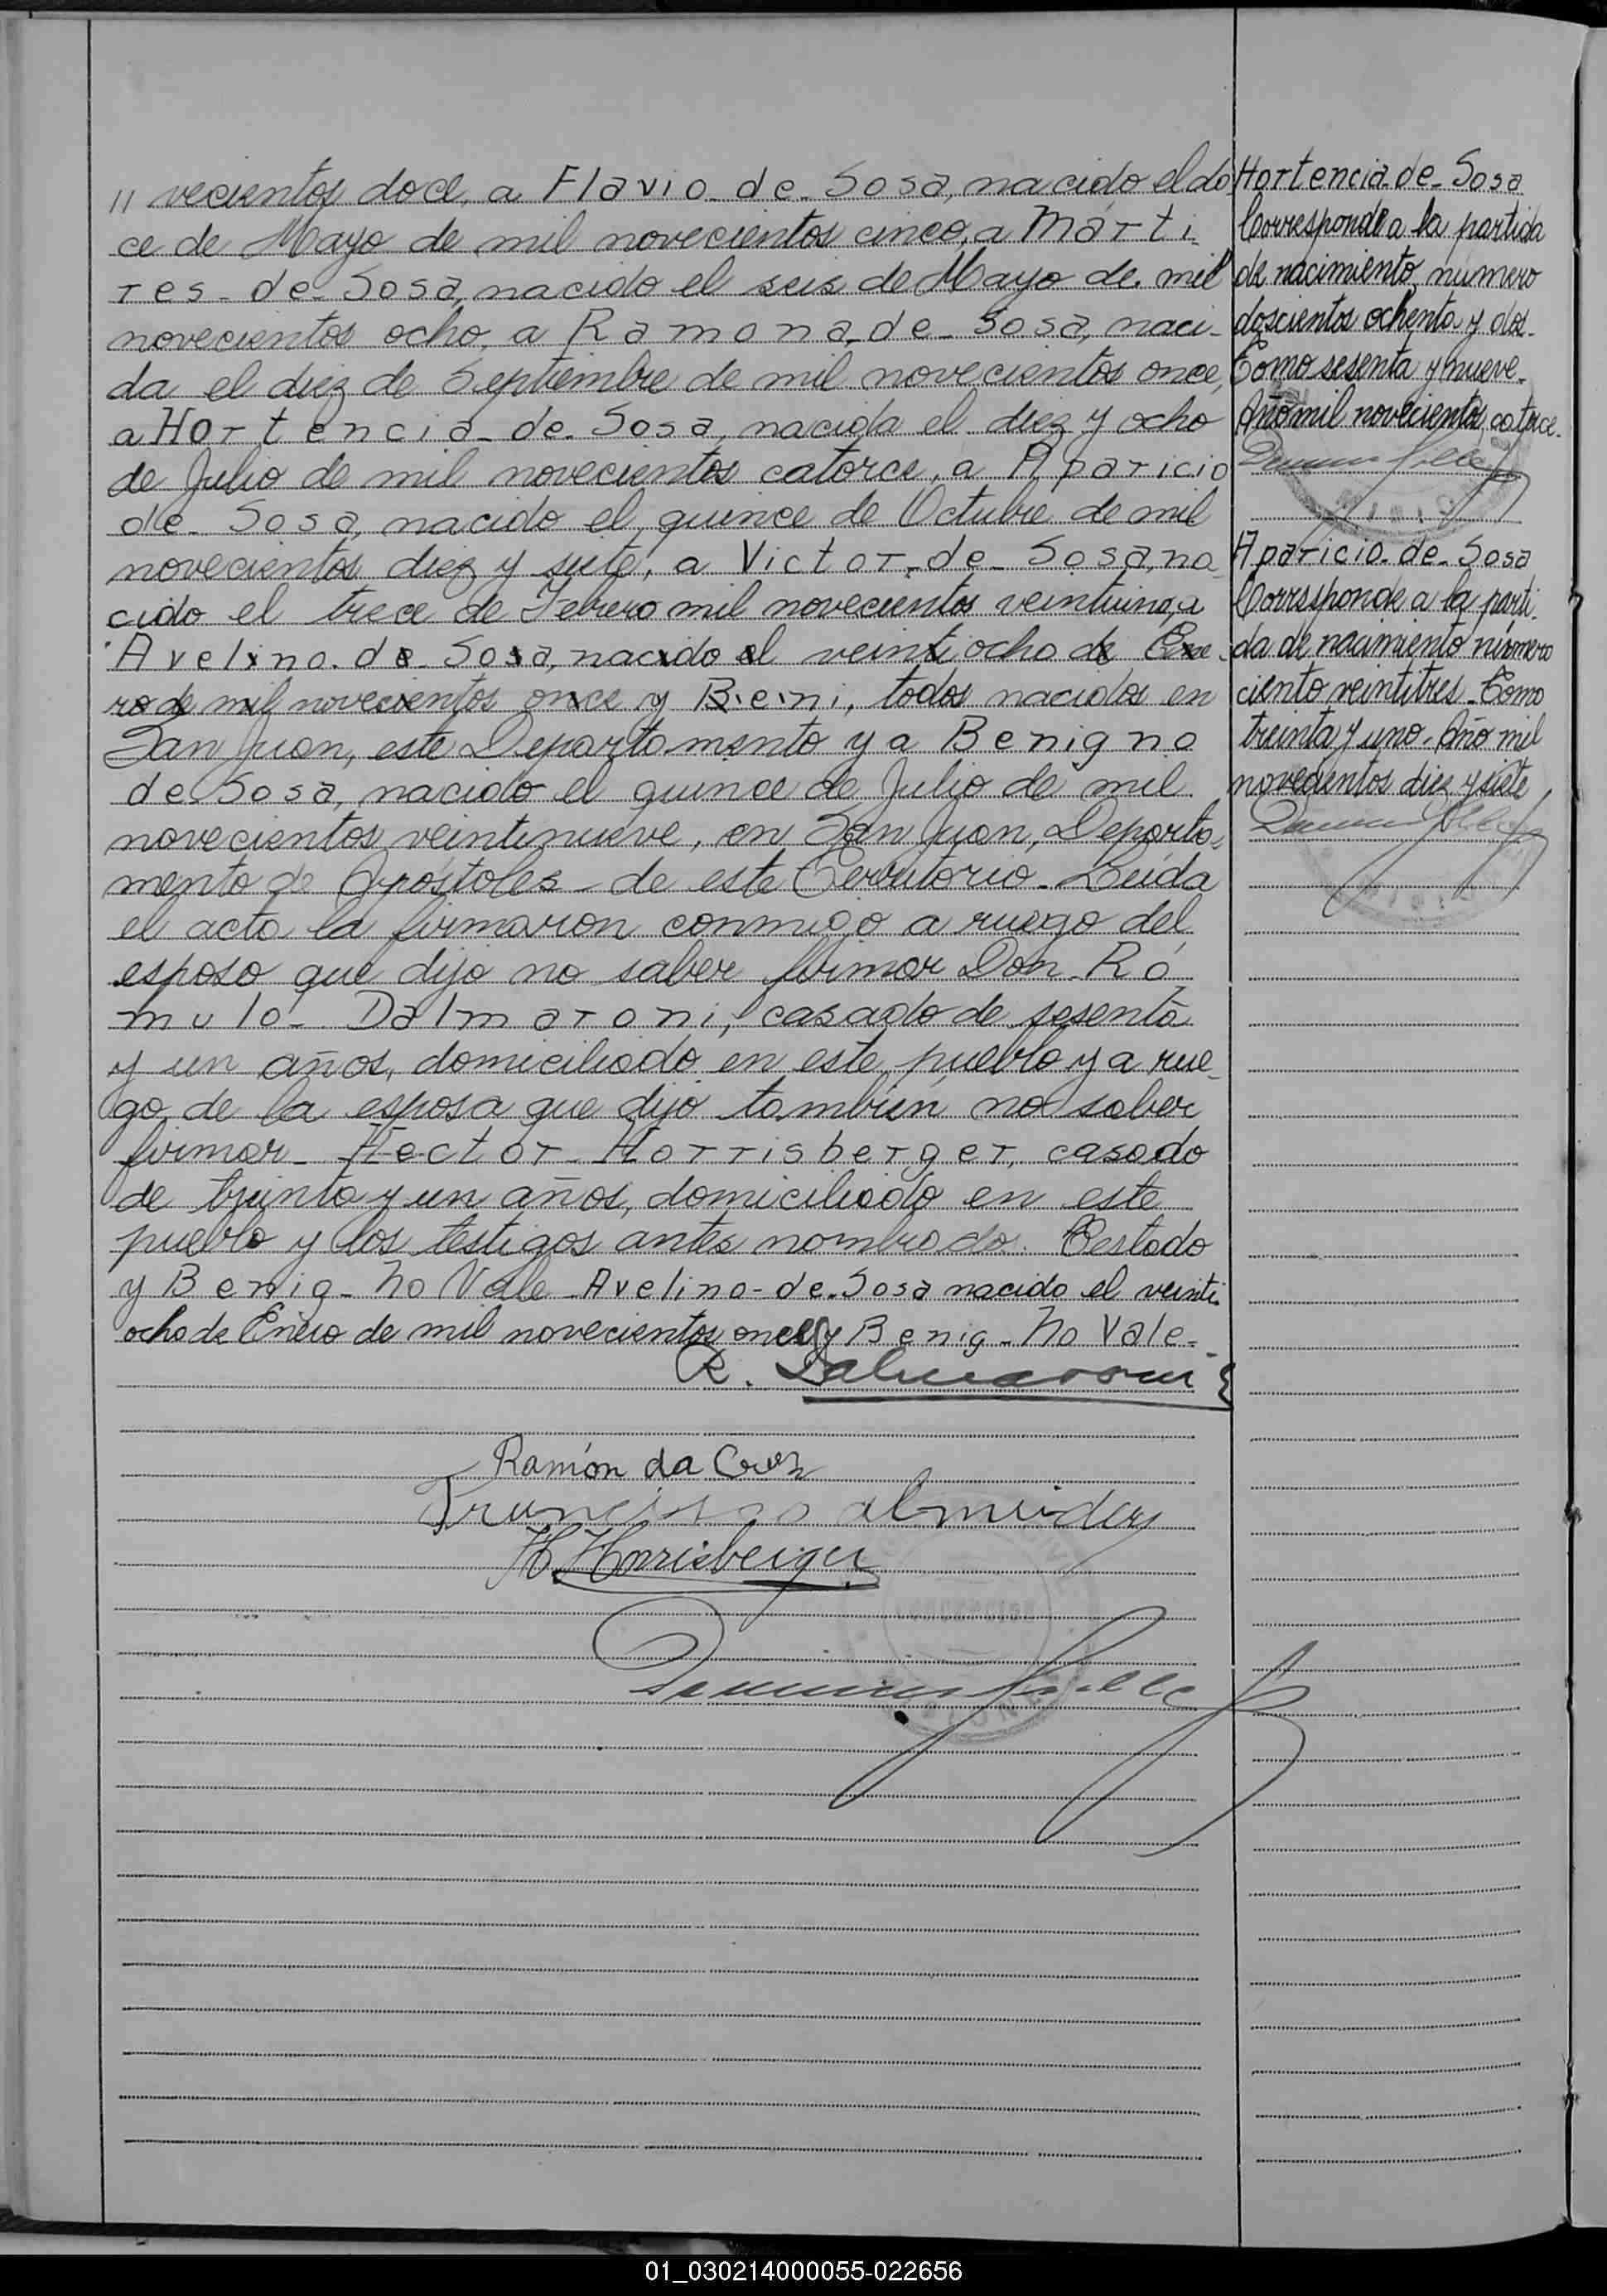 // vecientos doce, a Flavio de Sosa, nacido el do
ce de Mayo de mil novecientos cinco, a Márti_
res de Sosa, nacido el seis de Mayo de mil
novecientos ocho, a Ramona de Sosa, naci_
da el diez de Septiembre de mil novecientos once,
a Hortencia de Sosa, nacida el diez y ocho
de Julio de mil novecientos catorce, a Aparicio
de Sosa, nacido el quince de Octubre de mil
novecientos diez y siete, a Victor de Sosa, na_
cido el trece de Febrero mil novecientos veintiuno, a
Avelino de Sosa, nacido el veintiocho de Ene_
ro de mil novecientos once y Beni, todos nacidos en
San Juan, este Departamento y a Benigno
de Sosa, nacido el quince de Julio de mil
novecientos veintinueve, en San Juan, Departa_
mento de Apóstoles de este Territorio. Leída
el acta la firmaron conmigo a ruego del
esposo que dijo no saber firmar Don Ró
mulo Dalmaroni, casado de sesenta
y un años, domiciliado en este pueblo y a rue_
go de la esposa que dijo también no saber
firmar Hector Harrisberger, casado
de treinta y un años, domiciliado en este
pueblo y los testigos antes nombrados. Testado
y Benig_ No Vale Avelino de Sosa nacido el veinti_
ocho de Enero de mil novecientos once y Benig_ No Vale_
R. Dalmaroni
Ramón da Cruz
Francisco almeida
H. Harrisberger
Hortencia de Sosa
Corresponde a la partida
de nacimiento número
doscientos ochenta y dos_
Tomo sesenta y nueve_
Año mil novecientos catorce_
Aparicio de Sosa
Corresponde a la parti_
da de nacimiento número
ciento veintitres_Tomo
treinta y uno. Año mil
novecientos diez y siete
01_030214000055-022656